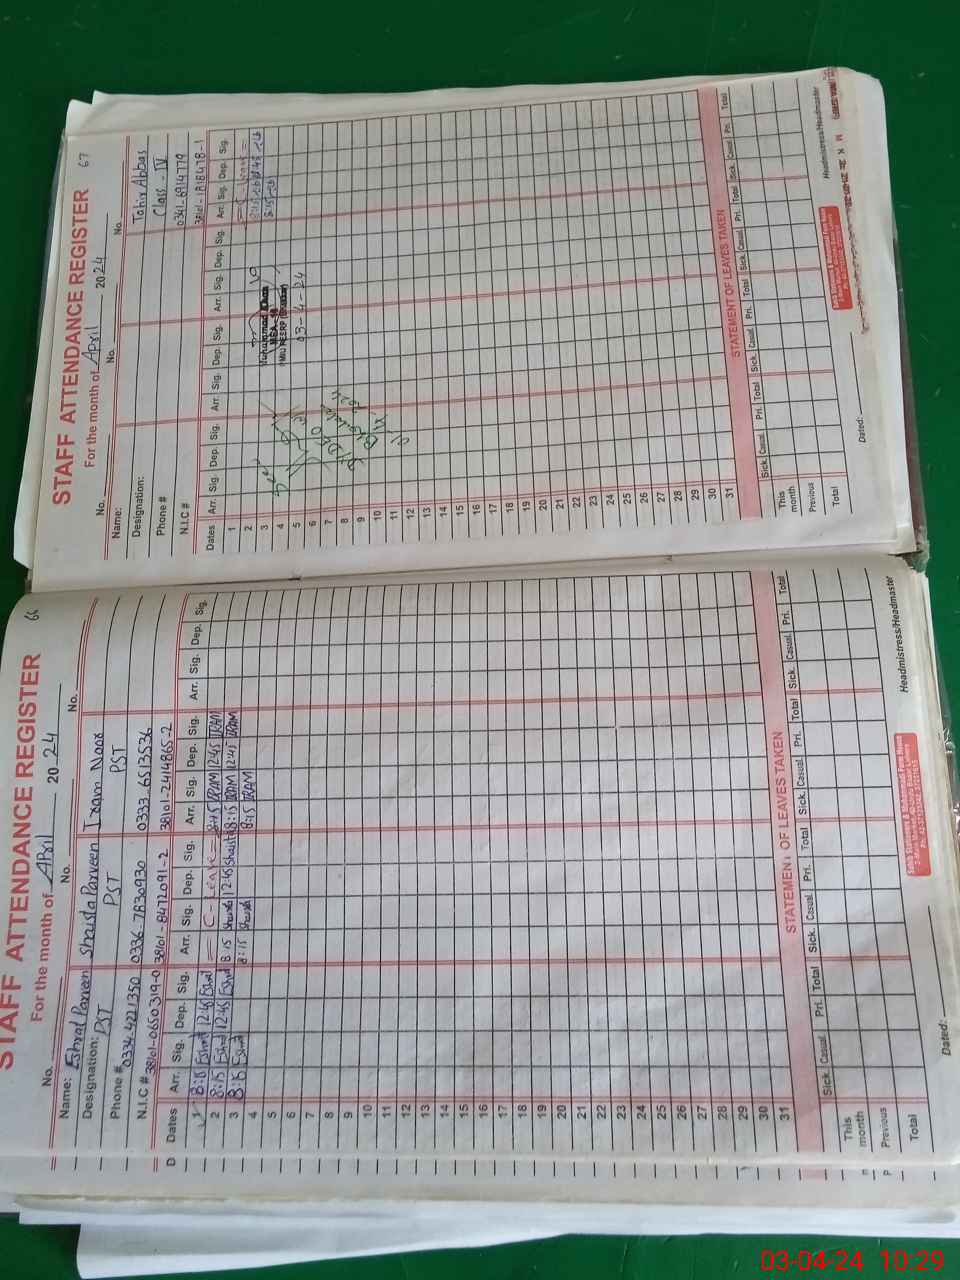 STAFF ATTENDANCE REGISTER 66
For the month of April 2024
No. No. No.
Name: Eshrat Parveen Shaista Parveen Iram Noor
Designation: PST PST PST
Phone # 0334-4221350 0336-7830930 0333-6513536
N.I.C # 38101-0650319-0 38101-8472091-2 38101-2414865-2
Dates Arr. Sig. Dep. Sig. Arr. Sig. Dep. Sig. Arr. Sig. Dep. Sig. Arr. Sig. Dep. Sig.
1 8:15 Eshrat 12:45 Eshrat = C-Leave = 8:15 IRAM 12:45 IRAM
2 8:15 Eshrat 12:45 Eshrat 8:15 Shaista 12:45 Shaista 8:15 IRAM 12:45 IRAM
3 8:15 Eshrat 8:15 Shaista 8:15 IRAM
4
5
6
7
8
9
10
11
12
13
14
15
16
17
18
19
20
21
22
23
24
25
26
27
28
29
30
31
STATEMENT OF LEAVES TAKEN
Sick. Casual. Pri. Total Sick. Casual. Pri. Total Sick. Casual. Pri. Total Sick. Casual. Pri. Total
This month
Previous
Total
Dated: Headmistress/Headmaster
STAFF ATTENDANCE REGISTER 67
For the month of April 2024
No. No. No.
Name: Tahir Abbas
Designation: Class-IV
Phone # 0341-6914779
N.I.C # 38101-1818478-1
Dates Arr. Sig. Dep. Sig. Arr. Sig. Dep. Sig. Arr. Sig. Dep. Sig. Arr. Sig. Dep. Sig.
1 = C-Leave =
2
3
4
5
6
7
8
9
10
11
12
13
14
15
16
17
18
19
20
21
22
23
24
25
26
27
28
29
30
31
Muhammad Khan
MEA-
03-4-24
STATEMENT OF LEAVES TAKEN
Sick. Casual. Pri. Total Sick. Casual. Pri. Total Sick. Casual. Pri. Total Sick. Casual. Pri. Total
This month
Previous
Total
Dated: Headmistress/Headmaster
03-04-24 10:29